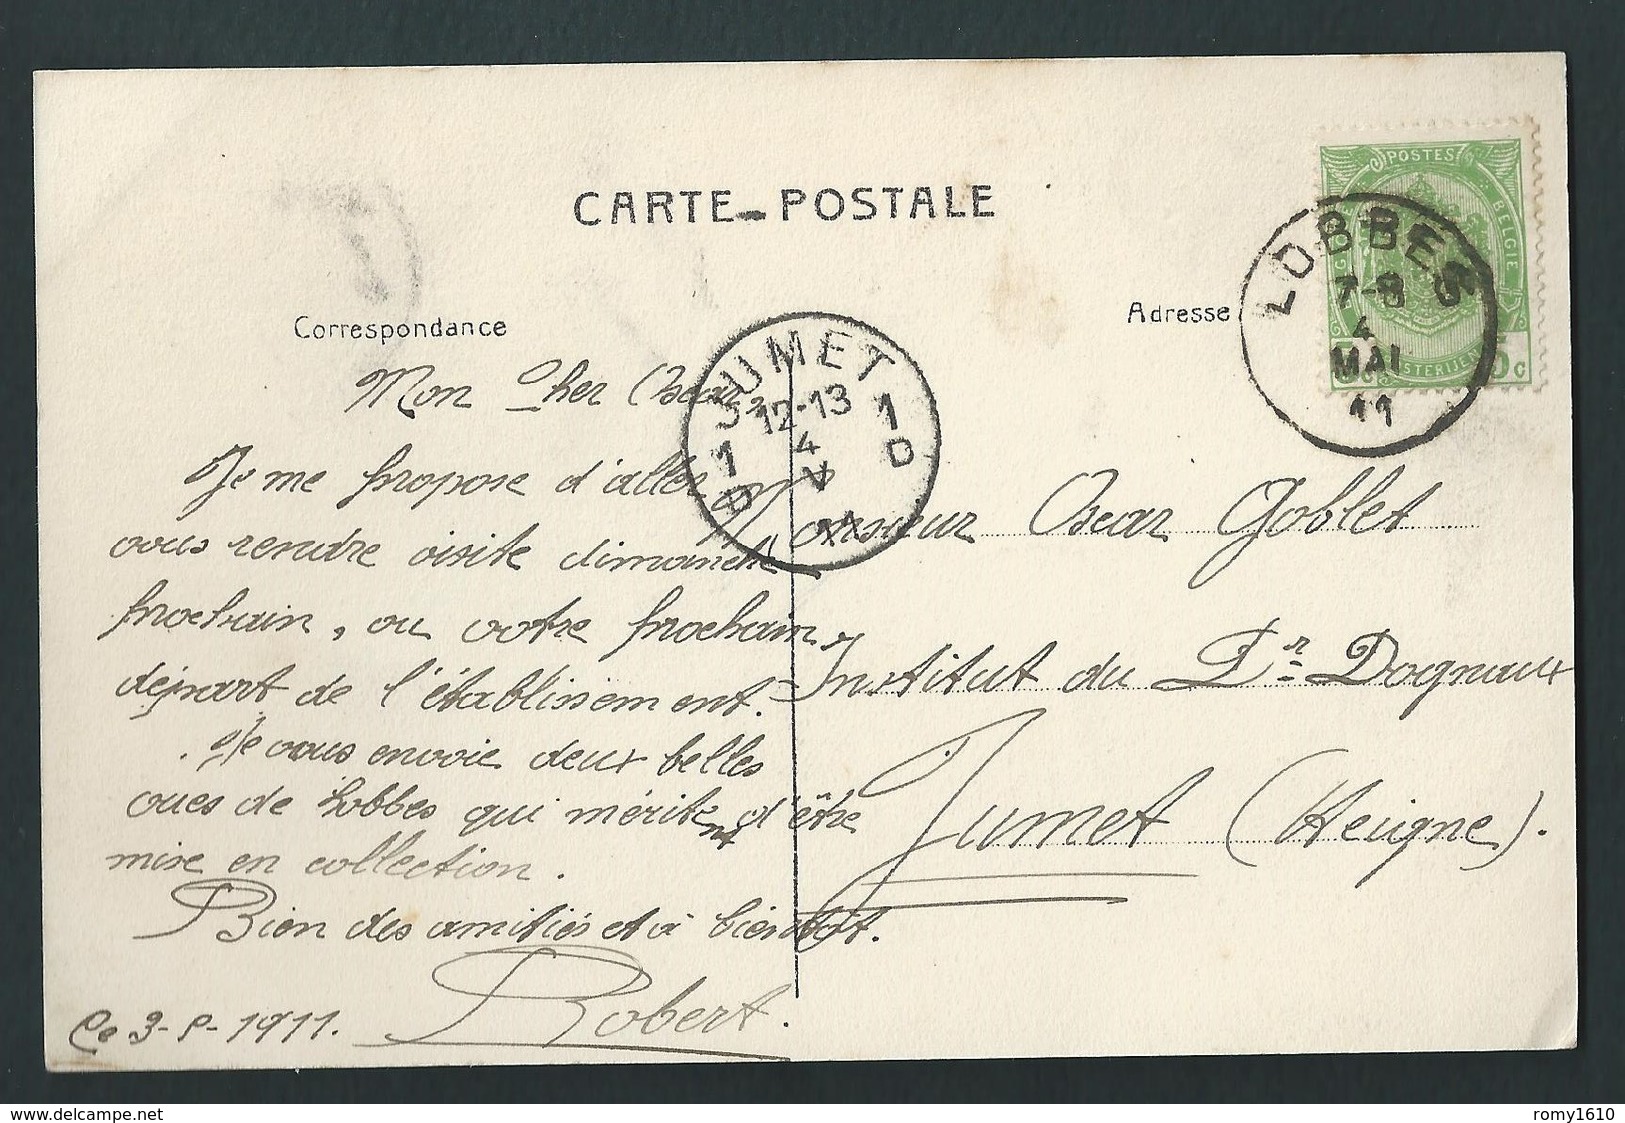 CARTE-POSTALE
Correspondance
Adresse
POSTES
BELGIE
5c
LOBBES
7-8
4
MAI
11
JUMET
12-13
4
V
1 D
1 D
Mon Cher Oscar,
Je me propose d'aller
vous rendre visite dimanche
prochain, ou votre prochain
départ de l'établissement.
Je vous envoie deux belles
vues de Lobbes qui méritent d'être
mise en collection.
Bien des amitiés et à bientôt.
Robert.
Ce 3-5-1911.
Monsieur Oscar Goblet
Institut du Dr Dognaux
Jumet (Heigne).
delcampe.net
romy1610